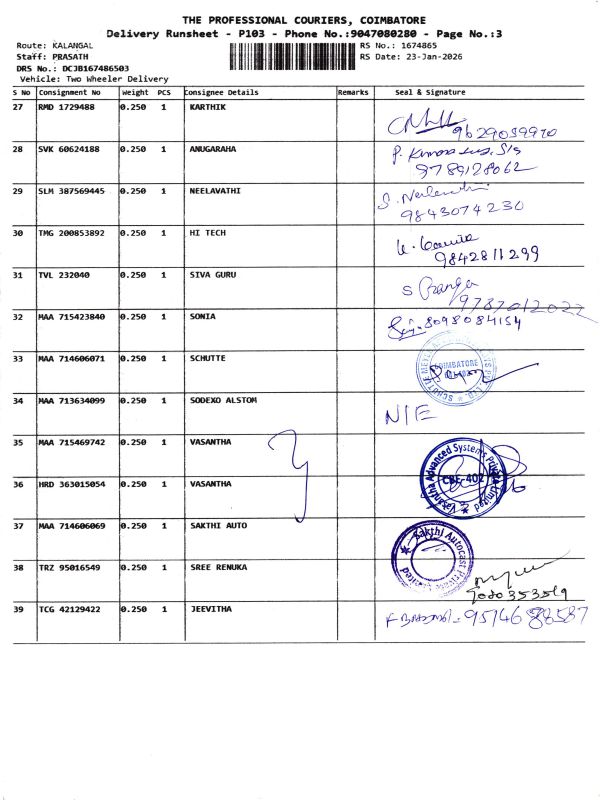 THE PROFESSIONAL COURIERS, COIMBATORE
Delivery Runsheet - P103 - Phone No.:9047080280 - Page No.:3
Route: KALANGAL
RS No.: 1674865
Staff: PRASATH
RS Date: 23-Jan-2026
DRS No.: DCJB167486503
Vehicle: Two Wheeler Delivery
S No Consignment No Weight PCS Consignee Details Remarks Seal & Signature
27 RMD 1729488 0.250 1 KARTHIK
9629039970
28 SVK 60624188 0.250 1 ANUGARAHA
9789128062
29 SLM 387569445 0.250 1 NEELAVATHI
9843074230
30 TMG 200853892 0.250 1 HI TECH
9842811299
31 TVL 232040 0.250 1 SIVA GURU
S
32 MAA 715423840 0.250 1 SONIA
8098084154
33 MAA 714606071 0.250 1 SCHUTTE
COIMBATORE
34 MAA 713634099 0.250 1 SODEXO ALSTOM N/E
35 MAA 715469742 0.250 1 VASANTHA
Vasantha Advanced Systems Private Limited
CBE-402
36 HRD 363015054 0.250 1 VASANTHA
37 MAA 714606069 0.250 1 SAKTHI AUTO
Sakthi Autocast Private Limited
38 TRZ 95016549 0.250 1 SREE RENUKA
39 TCG 42129422 0.250 1 JEEVITHA